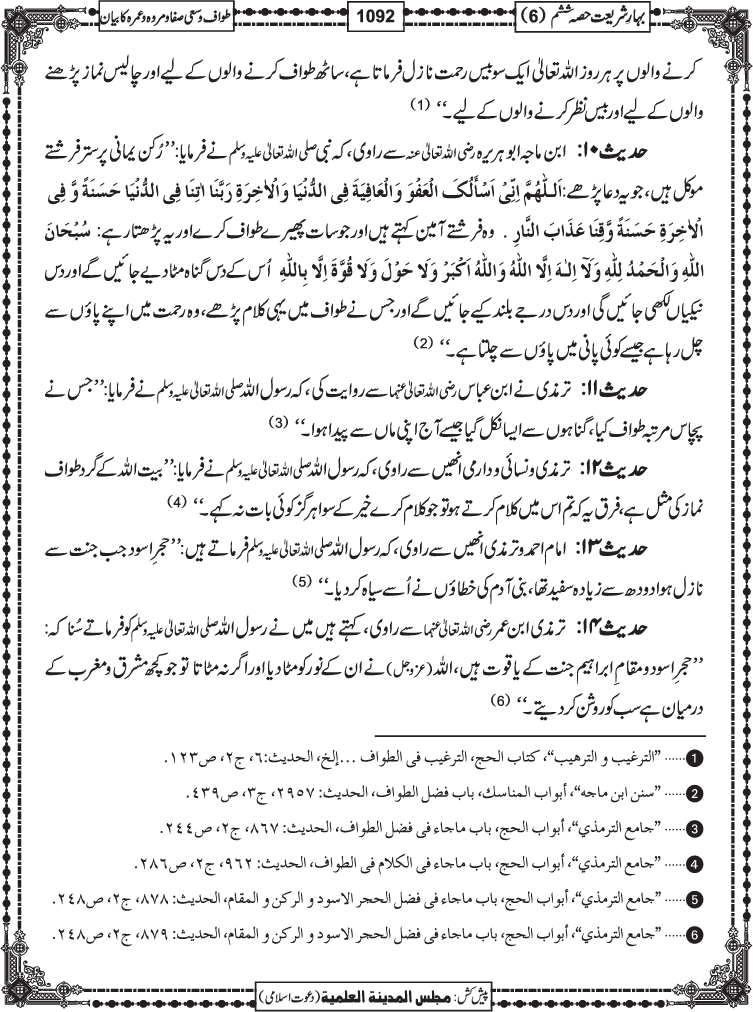 بہار شریعت حصہ ششم (6)
1092
طواف و سعی صفا و مروہ و عمرہ کا بیان
کرنے والوں پر ہر روز اللہ تعالیٰ ایک سو بیس رحمت نازل فرماتا ہے، ساٹھ طواف کرنے والوں کے لیے اور چالیس نماز پڑھنے
والوں کے لیے اور بیس نظر کرنے والوں کے لیے۔‘‘ (1)
حدیث ۱۰: ابن ماجہ ابوہریرہ رضی اللہ تعالیٰ عنہ سے راوی، کہ نبی صلی اللہ تعالیٰ علیہ وسلم نے فرمایا: ’’رُکن یمانی پر ستر فرشتے
موکل ہیں، جو یہ دعا پڑھے: اَللّٰهُمَّ اِنِّیْ اَسْأَلُکَ الْعَفْوَ وَالْعَافِیَةَ فِی الدُّنْیَا وَالْاٰخِرَةِ رَبَّنَا اٰتِنَا فِی الدُّنْیَا حَسَنَةً وَّ فِی
الْاٰخِرَةِ حَسَنَةً وَّقِنَا عَذَابَ النَّارِ . وہ فرشتے آمین کہتے ہیں اور جو سات پھیرے طواف کرے اور یہ پڑھتا رہے: سُبْحَانَ
اللّٰهِ وَالْحَمْدُ لِلّٰهِ وَلَآ اِلٰـهَ اِلَّا اللّٰهُ وَاللّٰهُ اَکْبَرُ وَلَا حَوْلَ وَلَا قُوَّةَ اِلَّا بِاللّٰهِ اُس کے دس گناہ مٹا دیے جائیں گے اور دس
نیکیاں لکھی جائیں گی اور دس درجے بلند کیے جائیں گے اور جس نے طواف میں یہی کلام پڑھے، وہ رحمت میں اپنے پاؤں سے
چل رہا ہے جیسے کوئی پانی میں پاؤں سے چلتا ہے۔‘‘ (2)
حدیث ۱۱: ترمذی نے ابن عباس رضی اللہ تعالیٰ عنہما سے روایت کی، کہ رسول اللہ صلی اللہ تعالیٰ علیہ وسلم نے فرمایا: ’’جس نے
پچاس مرتبہ طواف کیا، گناہوں سے ایسا نکل گیا جیسے آج اپنی ماں سے پیدا ہوا۔‘‘ (3)
حدیث ۱۲: ترمذی و نسائی و دارمی انھیں سے راوی، کہ رسول اللہ صلی اللہ تعالیٰ علیہ وسلم نے فرمایا: ’’بیت اللہ کے گرد طواف
نماز کی مثل ہے، فرق یہ کہ تم اس میں کلام کرتے ہو تو جو کلام کرے خیر کے سوا ہرگز کوئی بات نہ کہے۔‘‘ (4)
حدیث ۱۳: امام احمد و ترمذی انھیں سے راوی، کہ رسول اللہ صلی اللہ تعالیٰ علیہ وسلم فرماتے ہیں: ’’حجرِ اسود جب جنت سے
نازل ہوا دودھ سے زیادہ سفید تھا، بنی آدم کی خطاؤں نے اُسے سیاہ کر دیا۔‘‘ (5)
حدیث ۱۴: ترمذی ابن عمر رضی اللہ تعالیٰ عنہما سے راوی، کہتے ہیں میں نے رسول اللہ صلی اللہ تعالیٰ علیہ وسلم کو فرماتے سُنا کہ:
’’حجرِ اسود و مقامِ ابراہیم جنت کے یاقوت ہیں، اللہ (عزوجل) نے ان کے نور کو مٹا دیا اور اگر نہ مٹاتا تو جو کچھ مشرق و مغرب کے
درمیان ہے سب کو روشن کر دیتے۔‘‘ (6)
1 ...... ”الترغيب و الترهيب“، كتاب الحج، الترغيب في الطواف ...إلخ، الحديث: ٦، ج٢، ص١٢٣.
2 ...... ”سنن ابن ماجه“، أبواب المناسك، باب فضل الطواف، الحديث: ٢٩٥٧، ج٣، ص٤٣٩.
3 ...... ”جامع الترمذي“، أبواب الحج، باب ماجاء في فضل الطواف، الحديث: ٨٦٧، ج٢، ص٢٤٤.
4 ...... ”جامع الترمذي“، أبواب الحج، باب ماجاء في الكلام في الطواف، الحديث: ٩٦٢، ج٢، ص٢٨٦.
5 ...... ”جامع الترمذي“، أبواب الحج، باب ماجاء في فضل الحجر الاسود و الركن و المقام، الحديث: ٨٧٨، ج٢، ص٢٤٨.
6 ...... ”جامع الترمذي“، أبواب الحج، باب ماجاء في فضل الحجر الاسود و الركن و المقام، الحديث: ٨٧٩، ج٢، ص٢٤٨.
پیش کش: مجلس المدینة العلمیة (دعوت اسلامی)